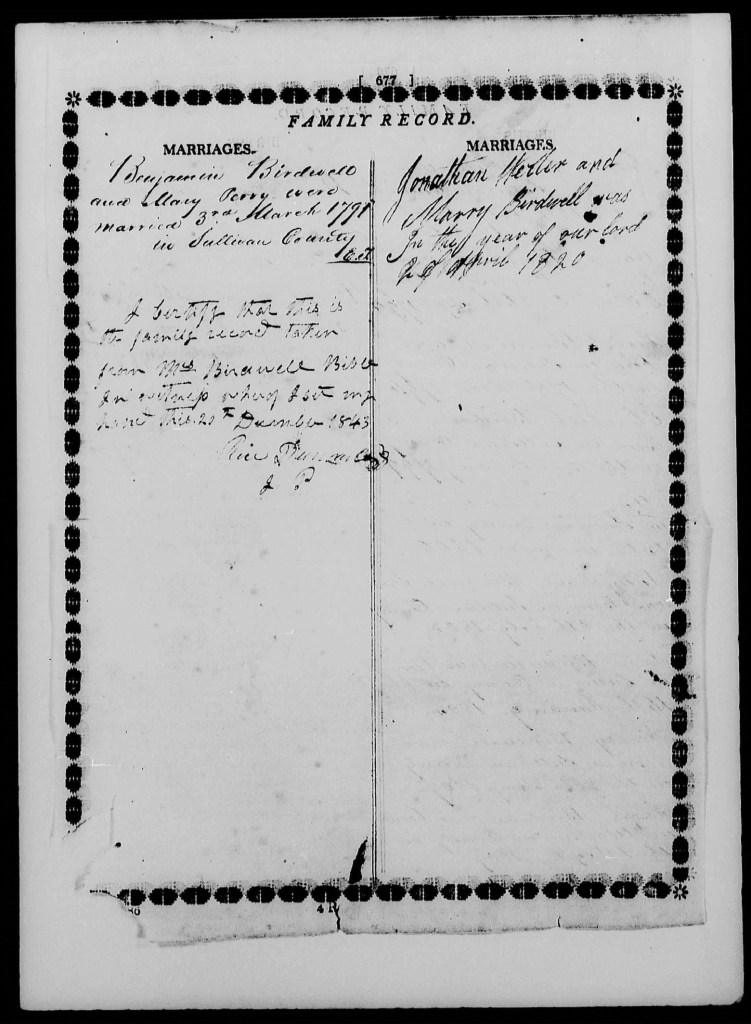 [ 677 ]
FAMILY RECORD.
MARRIAGES.
Benjamin Birdwell
and Mary Perry were
married 3rd March 1791
in Sullivan County
E.T
I Certify that this is
the family record taken
from Mrs Birdwell Bible
In witness whereof I set my
hand this 20th December 1843
Rice
J P
MARRIAGES.
Jonathan and
Marry Birdwell was
In the year of our lord
2 of April 1820
4 R